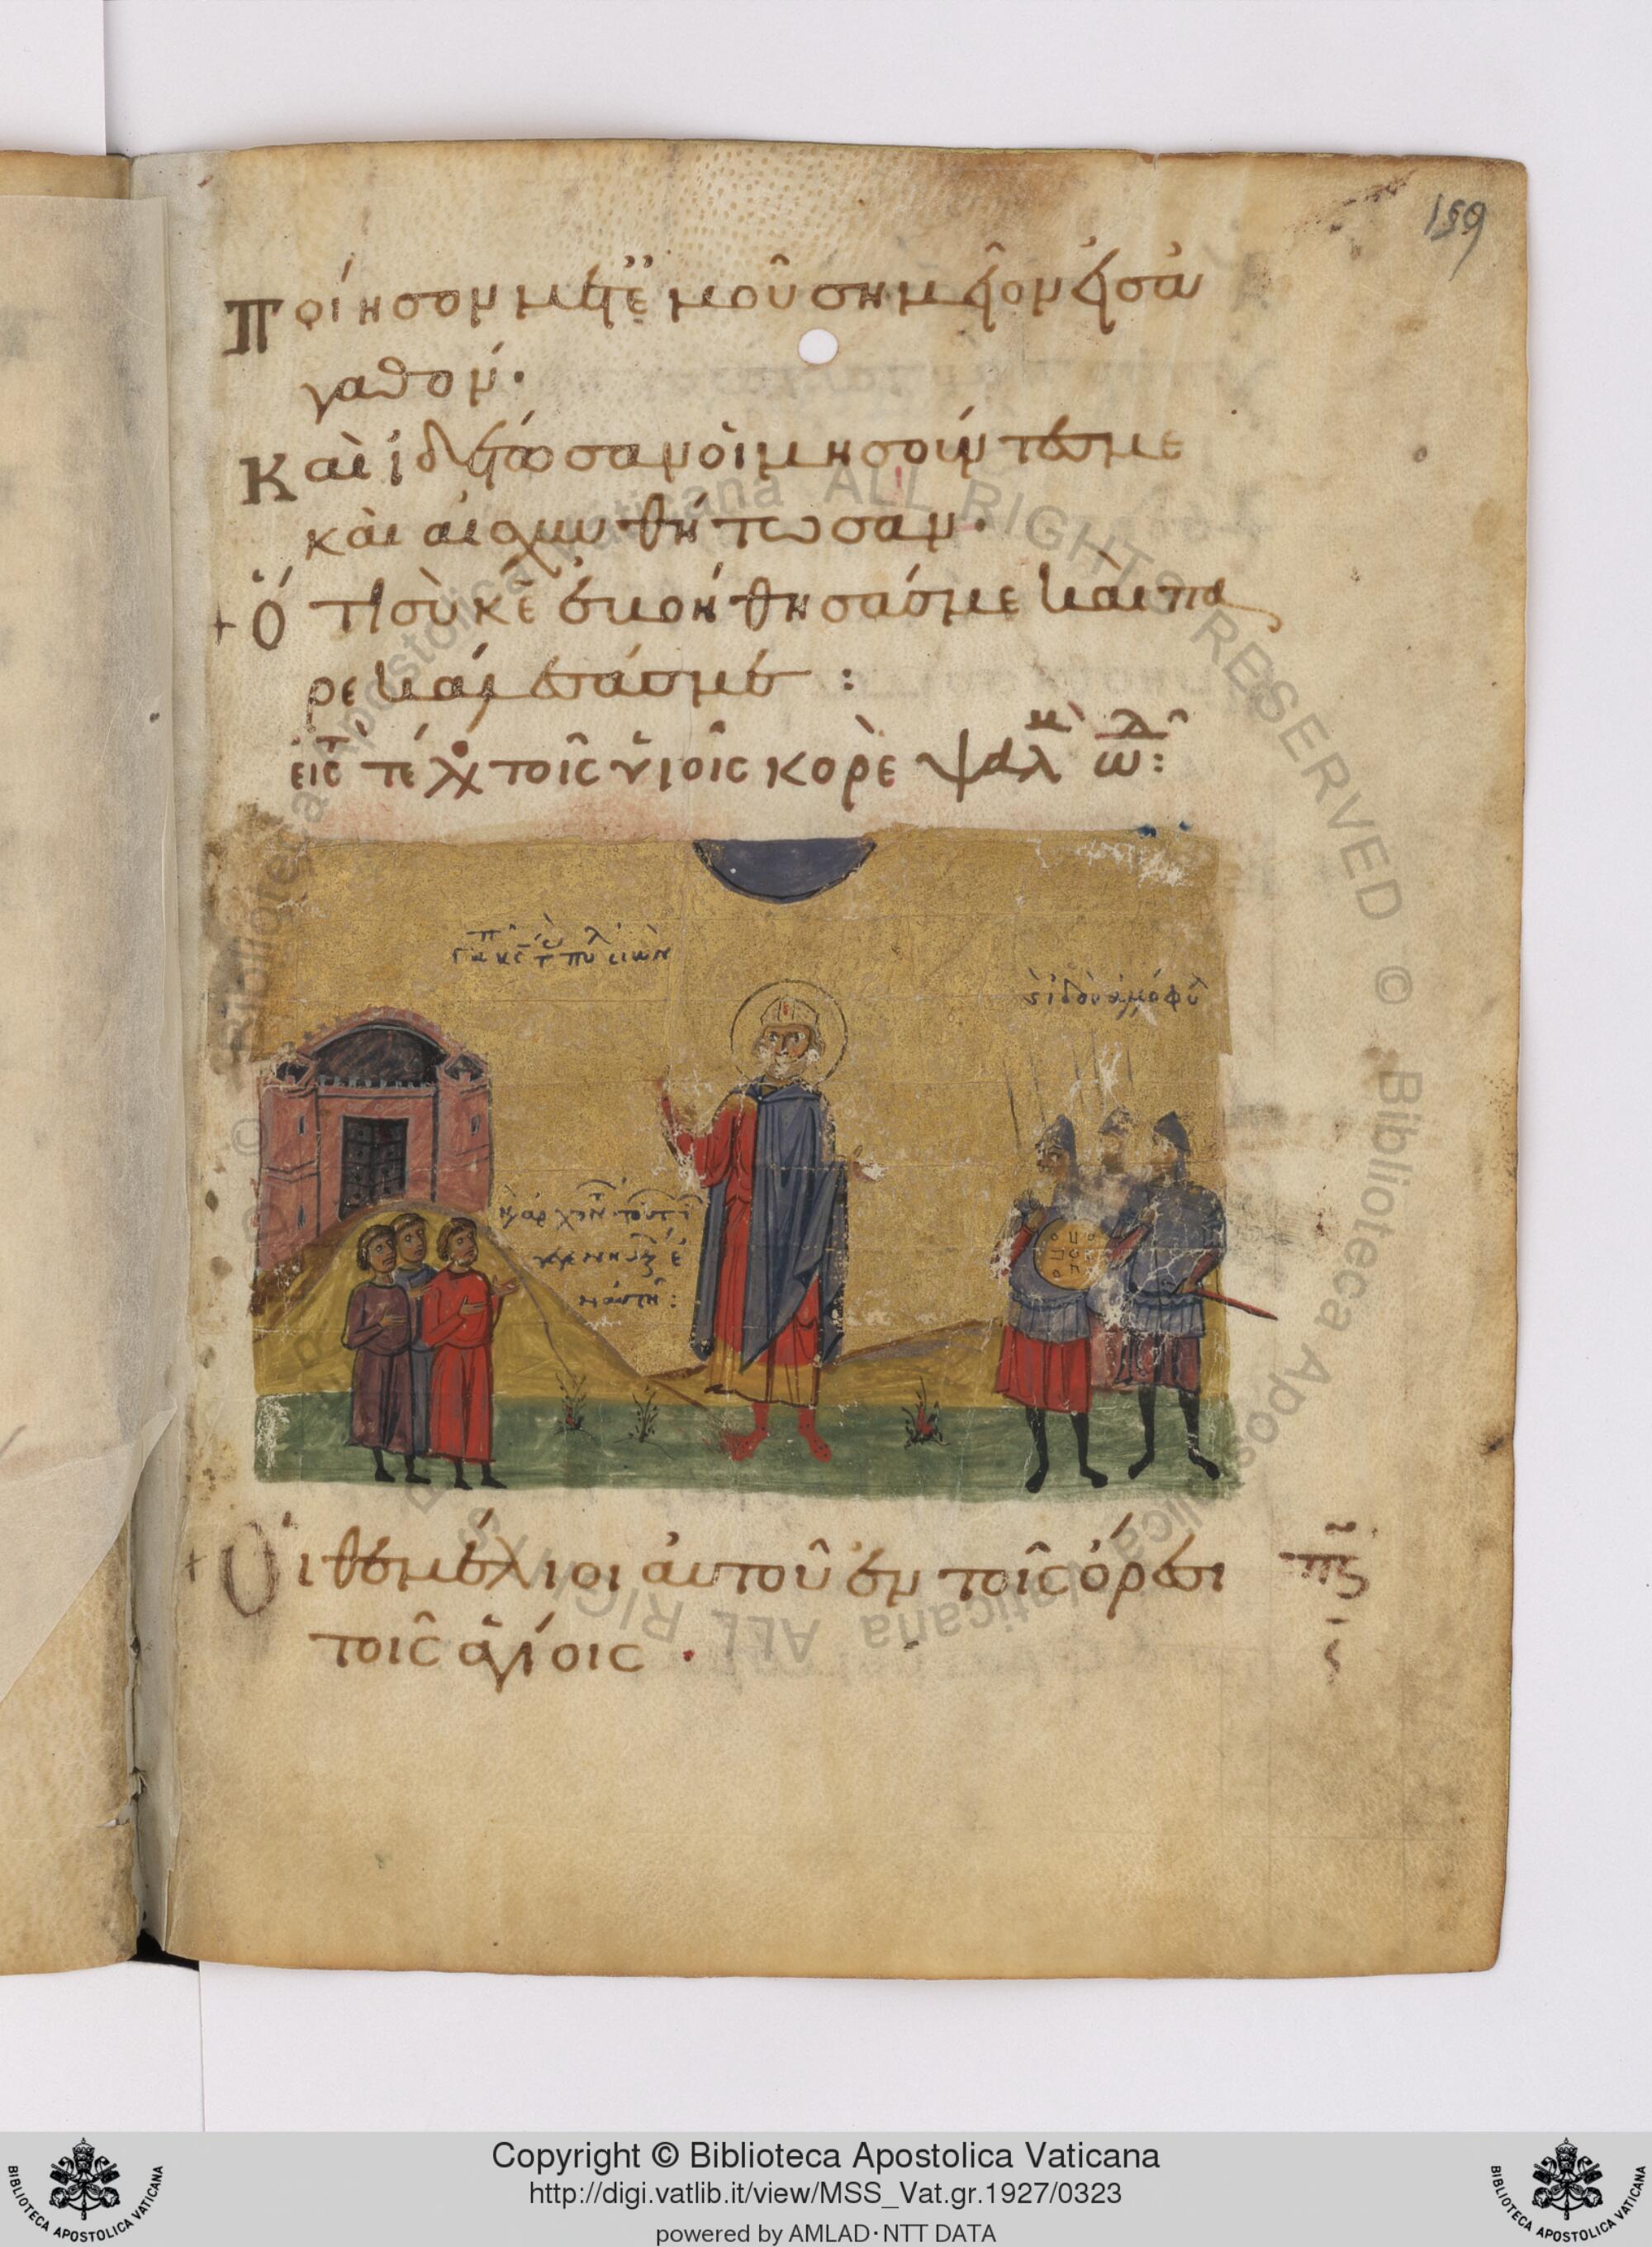 159
Ποίησον μετ' ἐμοῦ σημεῖον εἰς ἀ
γαθόν·
Καὶ ἰδέτωσαν οἱ μησοῦντες με
καὶ αἰσχυνθήτωσαν·
+ Ὅτι σὺ κε ἐβοήθησάς με καὶ πα
ρεκάλεσάς με :
εἰς τ τέλ τοῖς υἱοῖς κορὲ ψαλμ ωλ:
Οἱ θεμέλιοι αὐτοῦ ἐν τοῖς ὄρεσι
τοῖς ἁγίοις ·
πς
Copyright © Biblioteca Apostolica Vaticana
http://digi.vatlib.it/view/MSS_Vat.gr.1927/0323
powered by AMLAD·NTT DATA
BIBLIOTECA APOSTOLICA VATICANA
BIBLIOTECA APOSTOLICA VATICANA